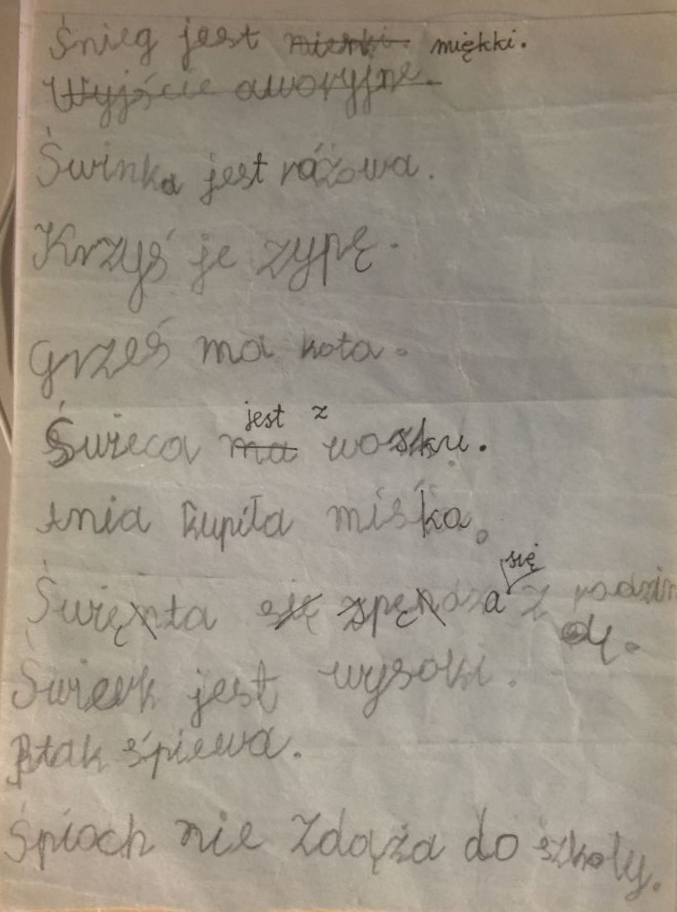 Śnieg jest mienki. miękki.
Wyjście aworyjne.
Świnka jest różowa.
Krzyś je zypę.
Grześ ma kota.
jest z
Świeca ma wosku.
Ania kupiła miśka.
się
Święnta się spęndza z rodzin
ą.
Świerk jest wysoki.
Ptak śpiewa.
Śpioch nie zdąża do szkoły.